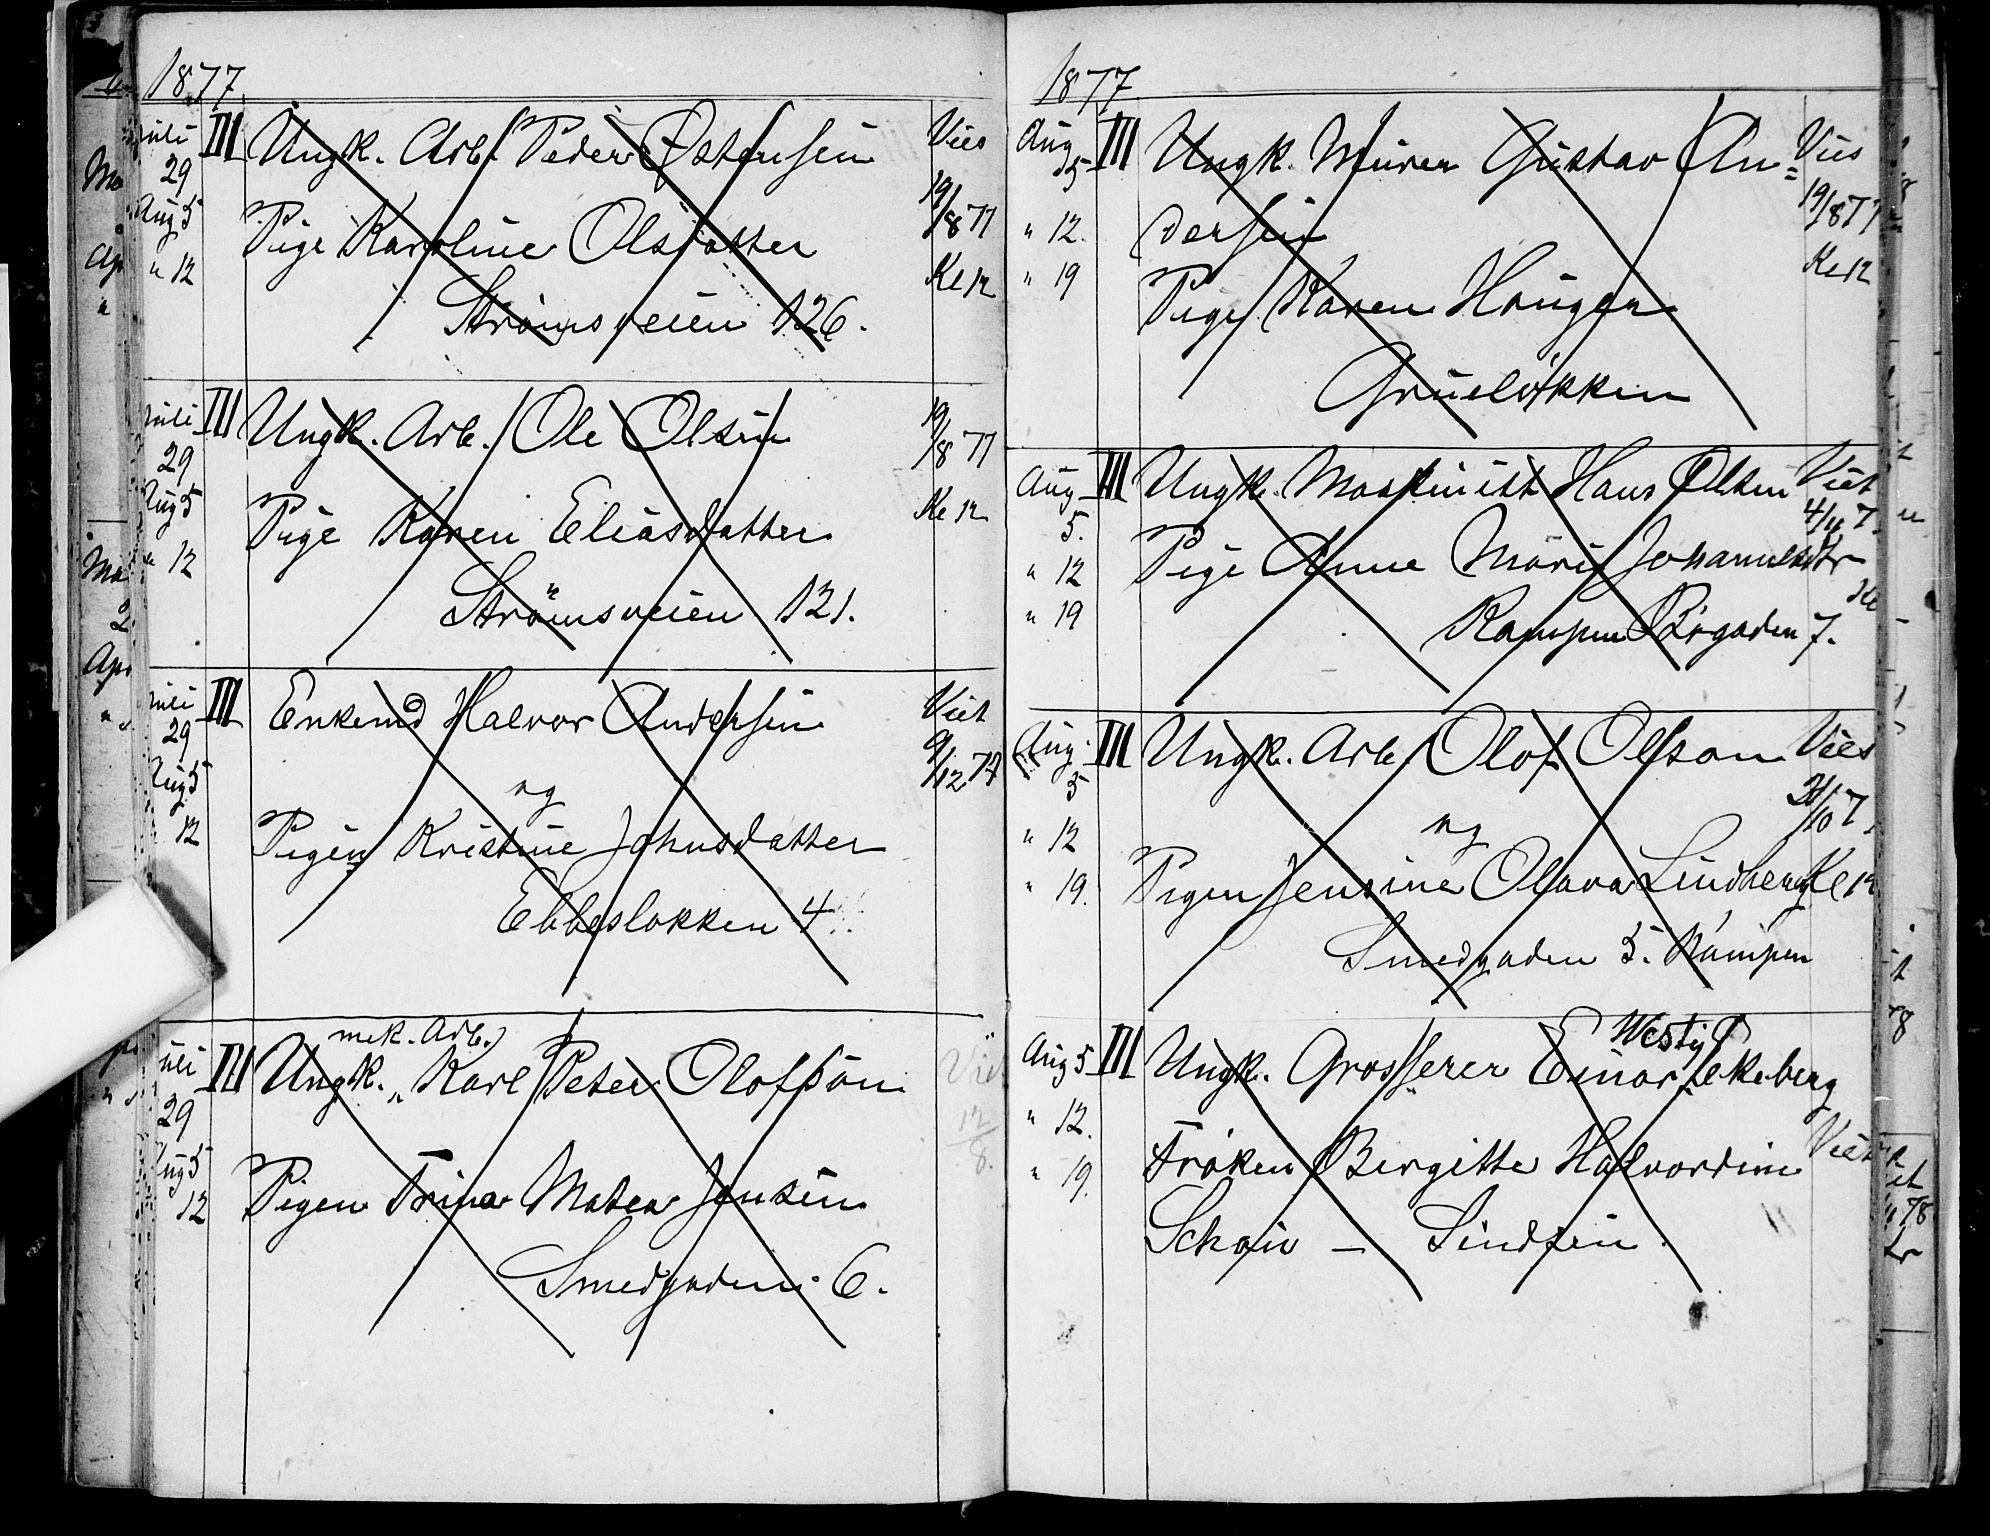 1877.
Juli 29 III Ungk. Arb. Peder Østensen Vies
Aug 5 Pige Karoline Olsdatter 19/8 77
" 12 Strømsveien 126. Kl 12
Juli 29 III Ungk. Arb. Ole Olsen 19/8 77
Aug 5 Pige Karen Eliasdatter Kl 12
" 12 Strømsveien 121.
Juli 29 III Enkemd Halvor Andersen Viet
Aug 5 og 9/12 77
12 Pigen Kristine Johnsdatter
Ebbesløkken 4
mek. Arb.
Juli 29 III Ungk. " Karl Peter Olofsson Viet
12/8.
Aug 5 Pigen Trina Matea Jensen
12 Smedgaden 6.
1877
Aug 5 III Ungk. Murer Gustav An= Vies
" 12. dersen 19/8 77
" 19 Pige Karen Haugen Kl 12
Grueløkken
Aug 5. III Ungk. Maskinist Hans Olsen Viet
4/11 7
" 12 Pige Anne Marie Johannesdtr
" 19 Kampen Bøgaden 7. Kl
Aug 5 III Ungk. Arb. Olof Olsson Vies
" 12 og /10 7
" 19. Pigen Jensine Olava Lindberg Kl 12
Smedgaden 5. Kampen
Westy
Aug 5 III Ungk. Grosserer Einar Ekeberg
" 12. Frøken Birgitte Halvordine Viet
" 19. Schøin — Lindsen.